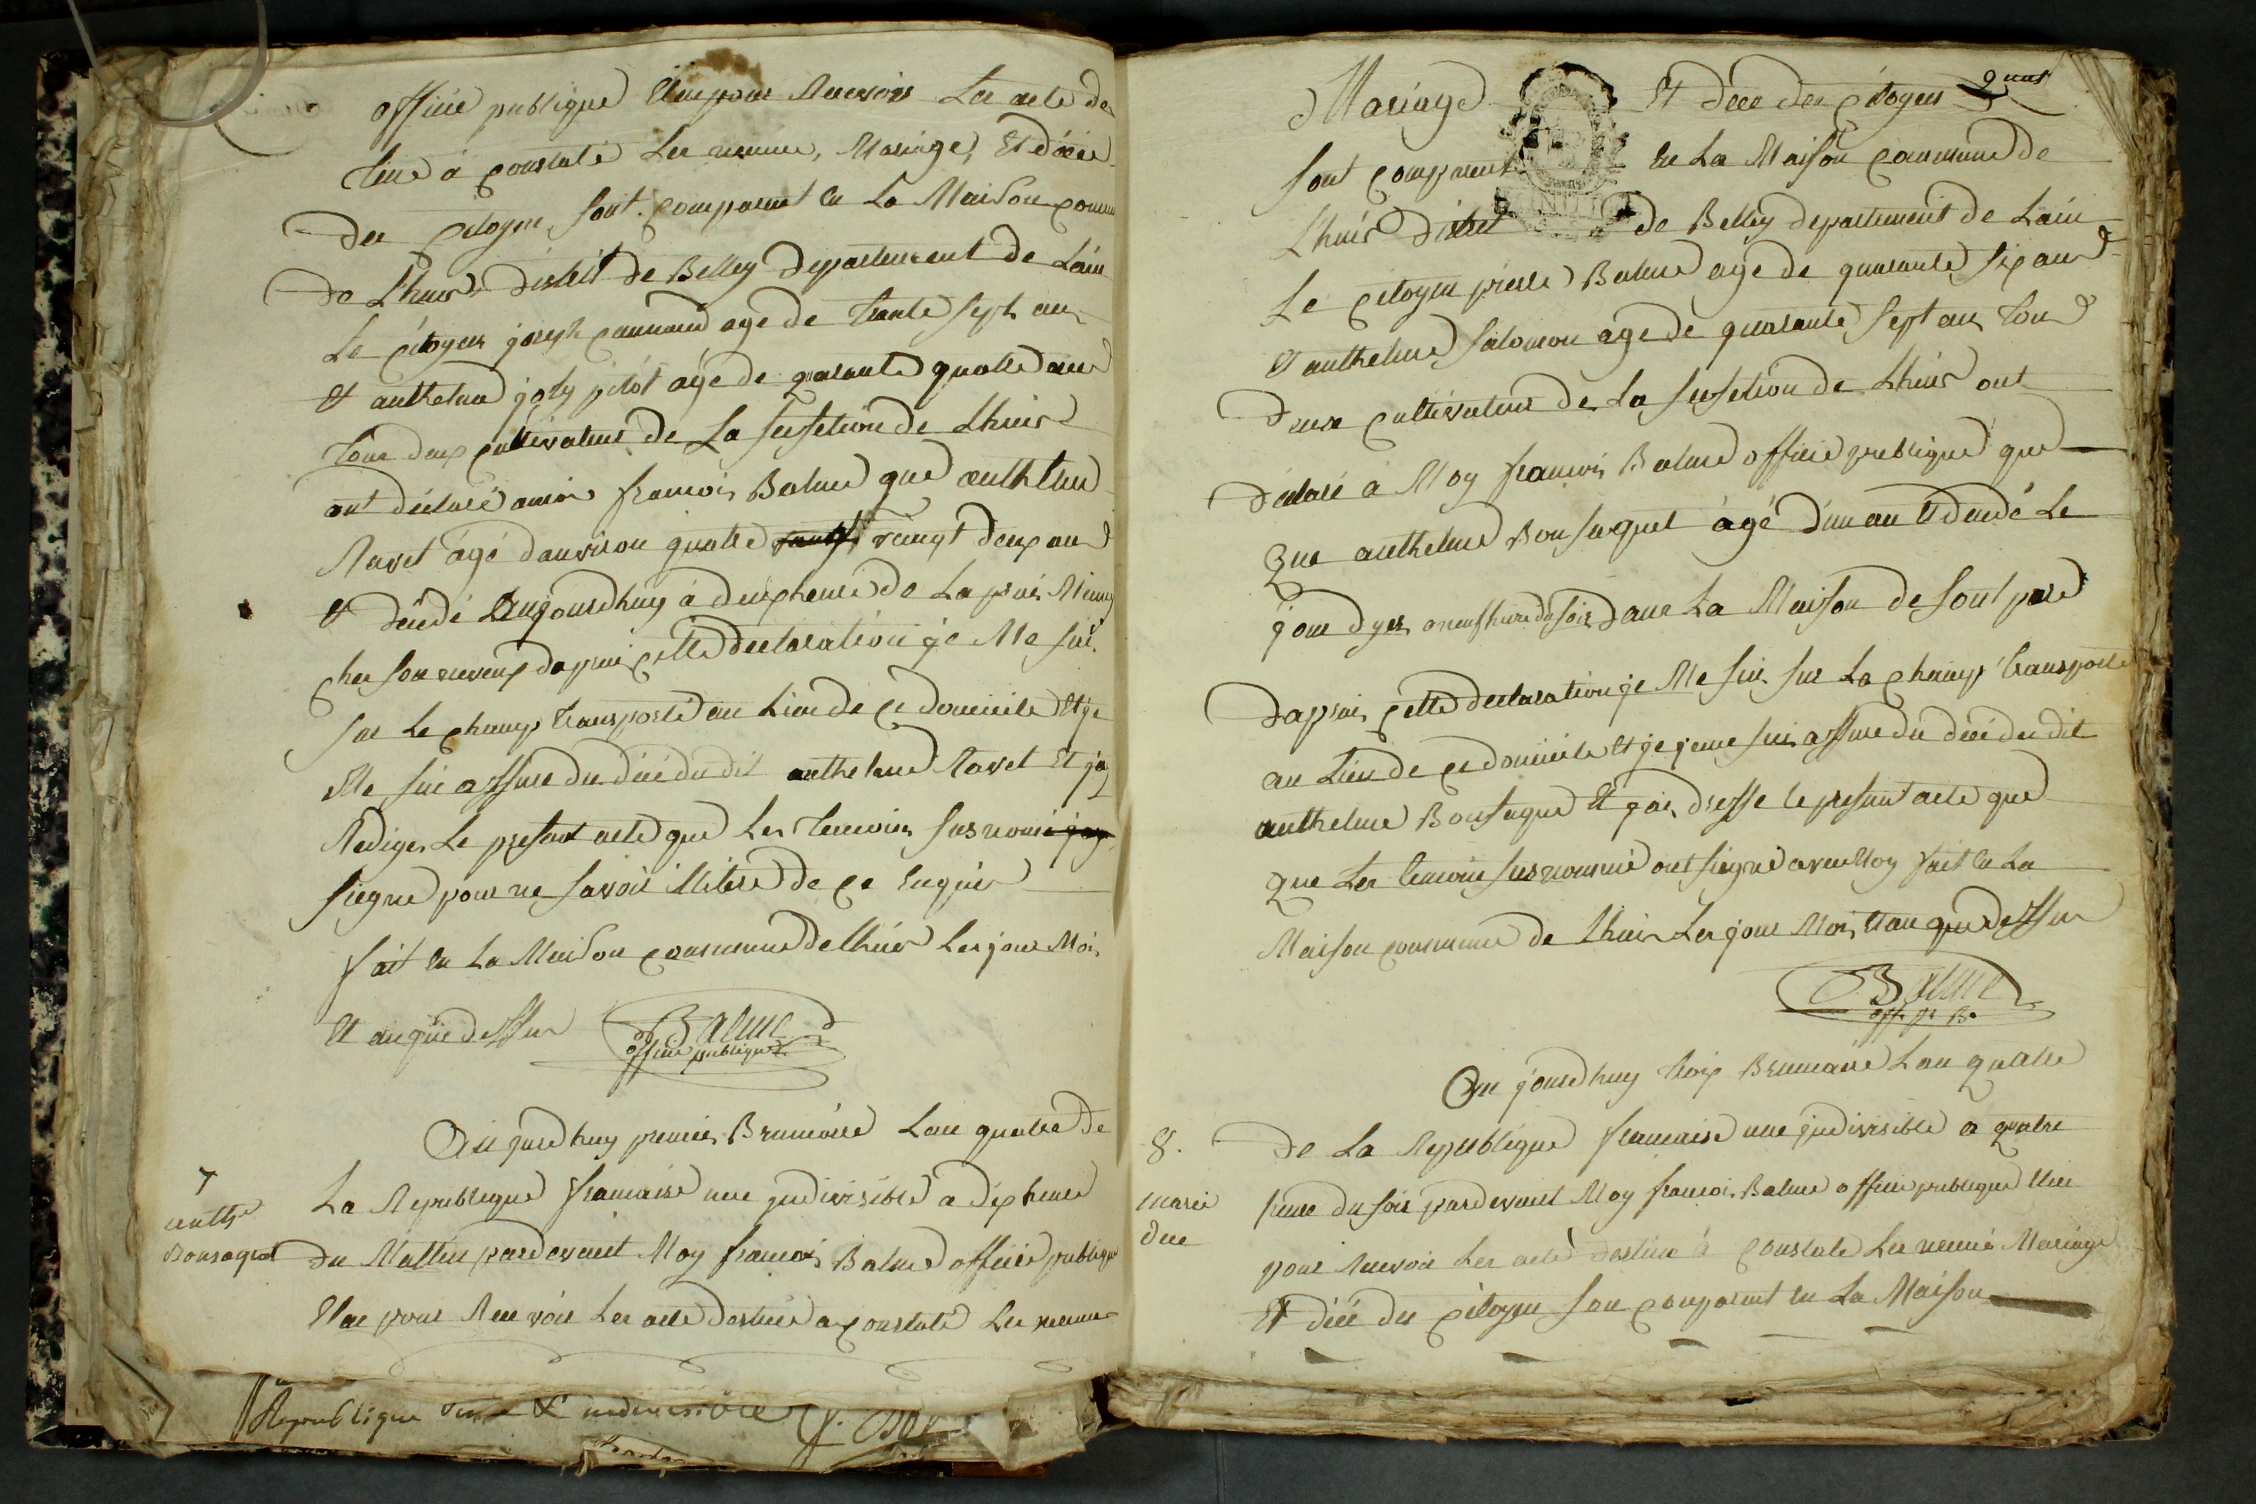 officié publique Elue pour Recevoir Les acte des
tiné á constaté Les nance, Mariage, Et décé
des Citoyen sont comparent en La Maison commu
de Lhuis, distrit de Belley departement de Lain
Le Citoyen joseph cannard age de trante sept an
Et anthelme joly pilot age de quarante quatre ans
tous deux cultivateur de La susetion de Lhuis
ont declaré a moi francois Balme que anthelme
Ravet âgé danviron quatre vaingt deux ans
Et decedé aujourdhuy á deux heure de La prés Midy
chez son neveux daprai cette declaration je Me sui
sur Le champ transporté au Lieu de ce domicile Et je
Me sui assure du décé du dit anthelme Ravet Et jay
Rediger Le presant acte que Les temoin susnomé
siegné pour ne savoir Litere de ce Enquis
fait en La Maison commune de lhuis Les jour Mois
Et an que dessus Balme
officié publique
Aujourdhuy premier Brumaire Lan quatre de
7
anthe
Bonsaquet
La Republique francaise une jndivisible a dix heure
du Mattin pardevant Moy francois Balme officié publique
Elue pour Recevoir Les acte destiné a constaté Les nance
Republique une & indivisible
Mariage Et décé des Citoyens
sont comparent En La Maison commune de
Lhuis distrit de Belley departement de Lain
Le Citoyen pierre Balme age de quarante six ans
Et anthelme Salomon age de quarante sept an tous
deux cultivateur de La susetion de Lhuis ont
déclaré a Moy francois Balme officié publique que
que anthelme Bonsaquet âgé d'un an Et décédé Le
jour dyer a neuf heure du soir Dans La Maison de sont pere
daprais cette declaration je Me sui sur La champ transporté
au Lieu de ce domicile Et je jeme sui assure du décé du dit
anthelme Bonsaque Et jai dresse le presant acte que
que Les temoin susnommé ont siegné avec Moy fait En La
Maison commune de Lhuis Les jour Mois Et an que dessus
Balme
off. p. B.
Aujourdhuy troix Brumaire Lan quatre
8.
marie
de La Republique francaise une jndivisible a quatre
heure du soir pardevant Moy francois Balme officié publique Elue
pour Recevoir Les acte destiné á constaté Les nance Mariage
Et décé des Citoyen son comparent en La Maison